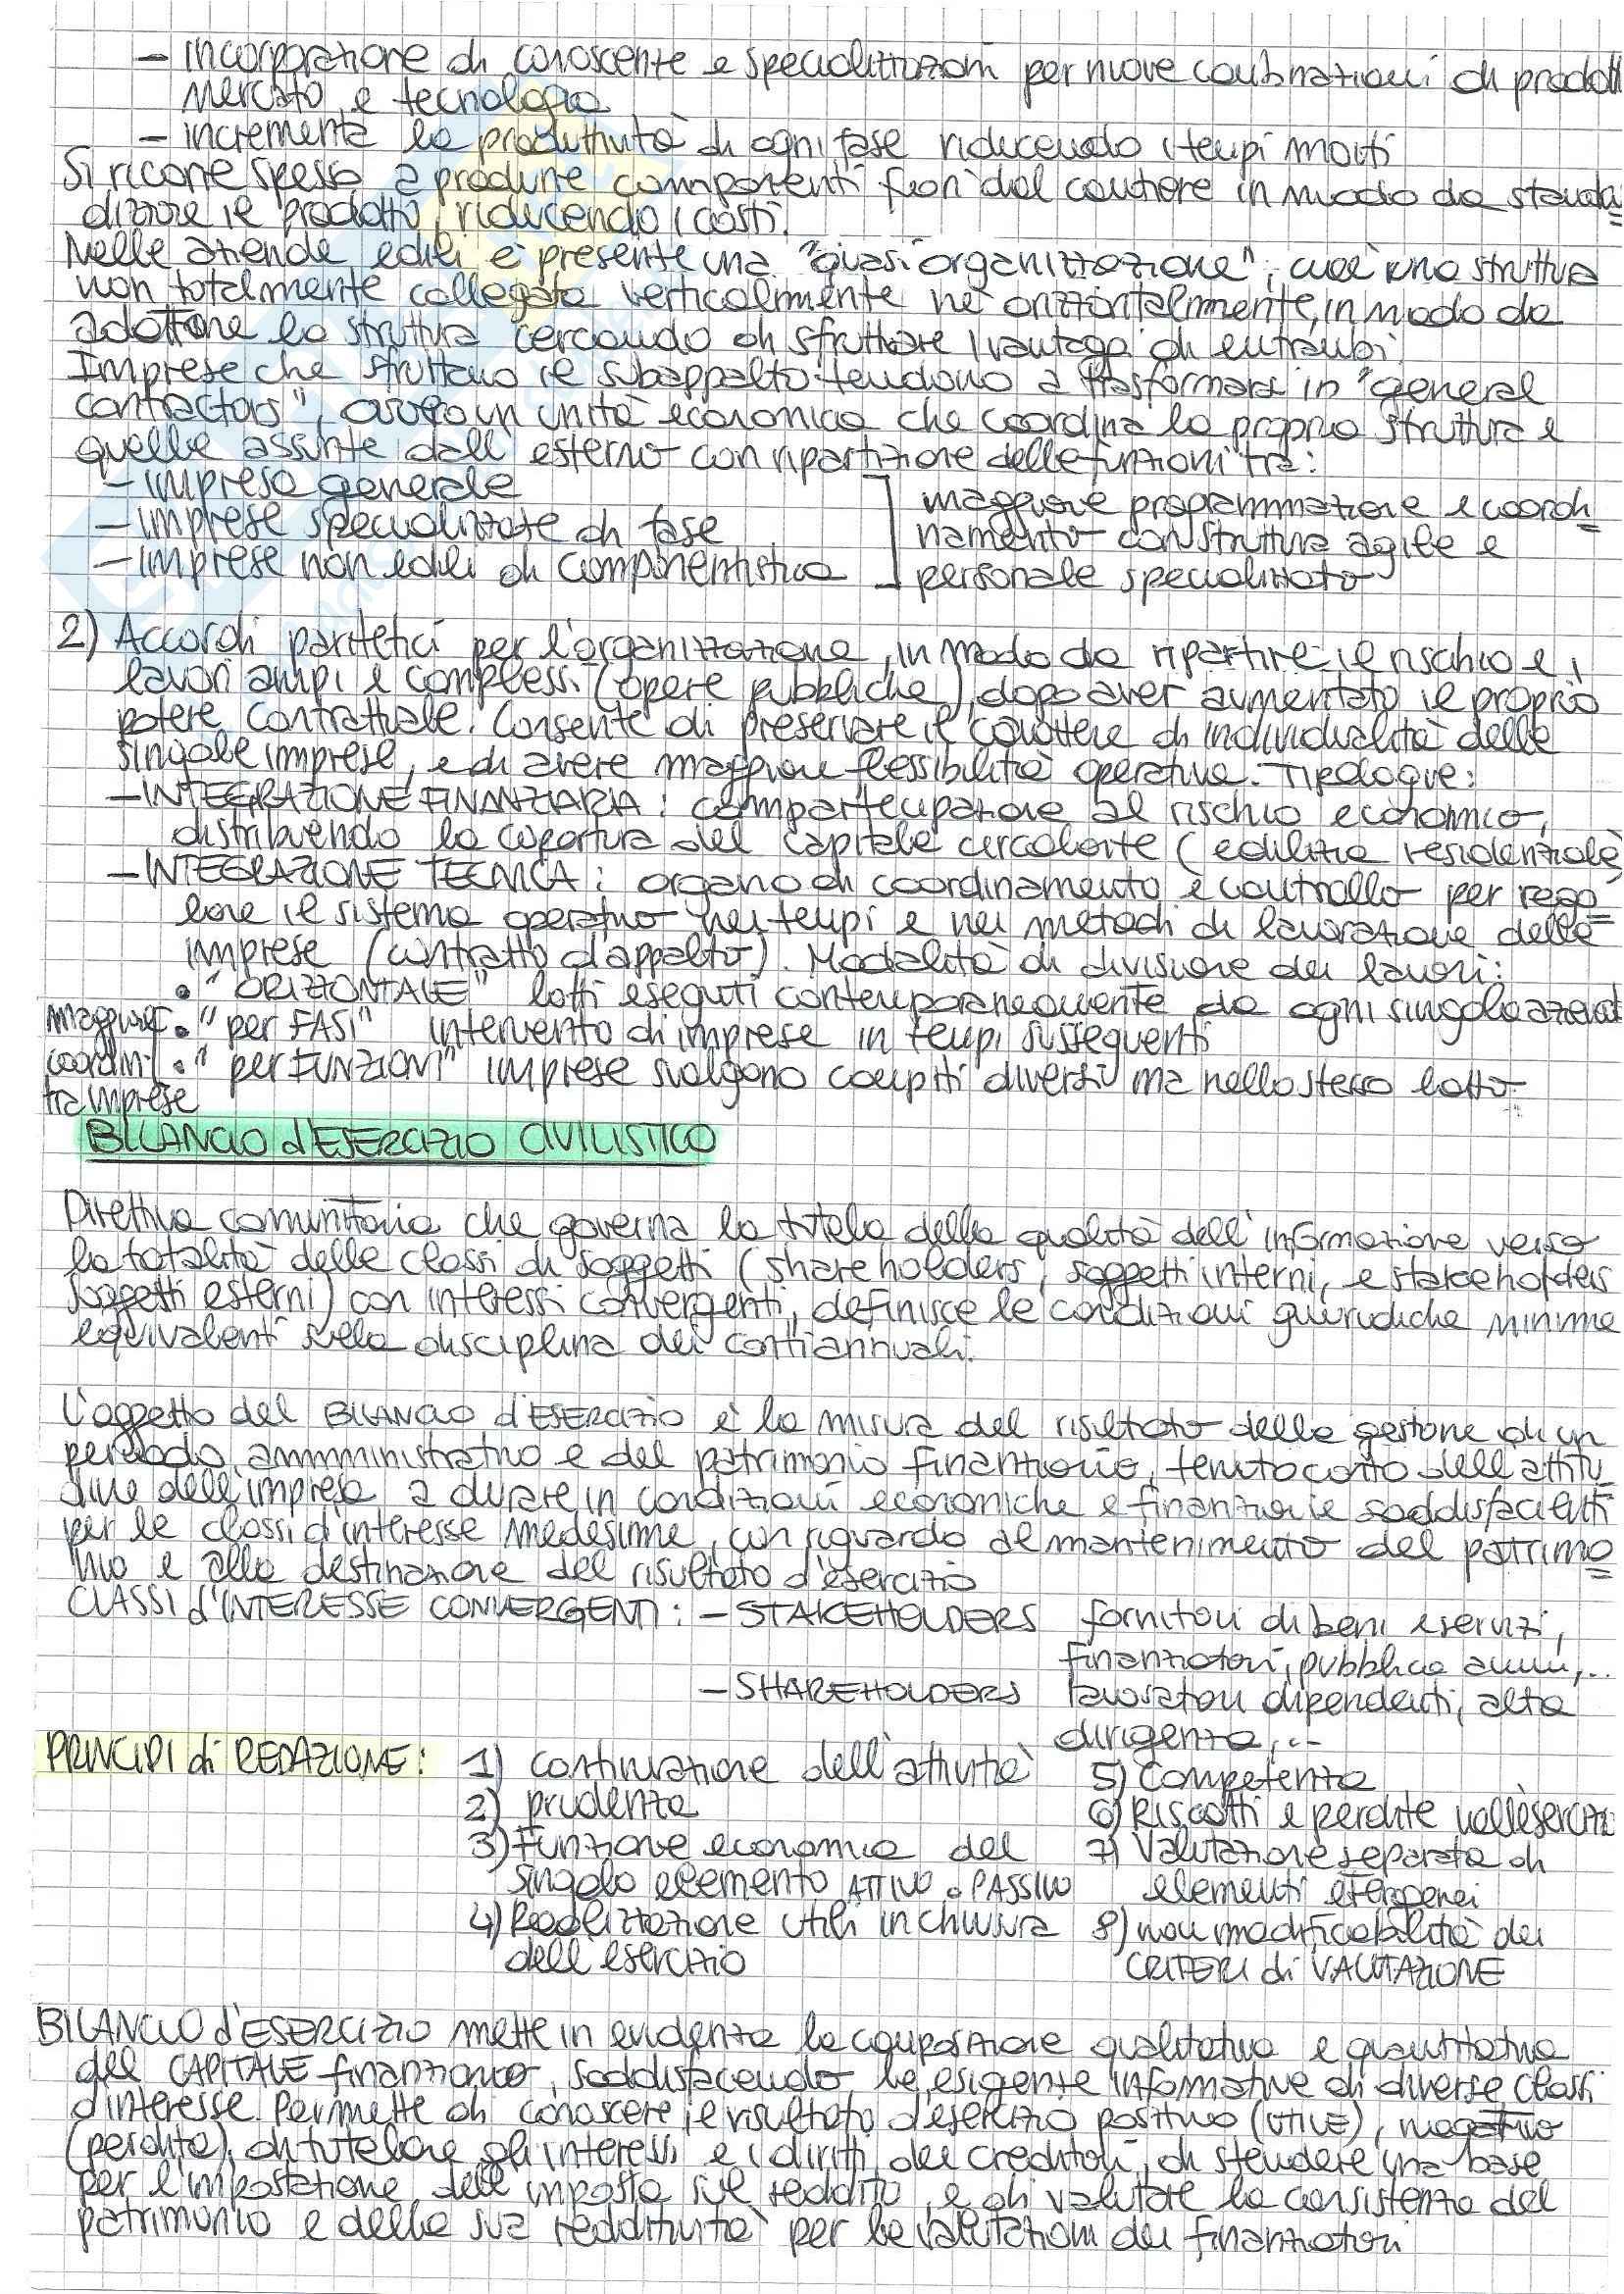 - incorporazione di conoscenze e specializzazioni per nuove combinazioni di prodotti
mercato e tecnologia
- incrementa la produttività di ogni fase riducendo i tempi morti
Si ricorre spesso a produrre componenti fuori dal cantiere in modo da standar
dizzare il prodotto, riducendo i costi.
Nelle aziende edili è presente una "quasi organizzazione", cioè una struttura
non totalmente collegata verticalmente nè orizzontalmente, in modo da
adottare la struttura cercando di sfruttare i vantaggi di entrambi.
Imprese che sfruttano il subappalto tendono a trasformarsi in "general
contractors", ovvero un unità economica che coordina la propria struttura e
quelle assunte dall'esterno con ripartizione delle funzioni tra:
- impresa generale
- imprese specializzate di fase
- imprese non edili di componentistica
maggiore programmazione e coordi
namento con struttura agile e
personale specializzato
2) Accordi paritetici per l'organizzazione, in modo da ripartire il rischio e i
lavori ampi e complessi (opere pubbliche), dopo aver aumentato il proprio
potere contrattuale. Consente di preservare il carattere di individualità delle
singole imprese, e di avere maggiore flessibilità operativa. Tipologie:
- INTEGRAZIONE FINANZIARIA: compartecipazione al rischio economico,
distribuendo la copertura del capitale circolante (edilizia residenziale)
- INTEGRAZIONE TECNICA: organo di coordinamento e controllo per rego
lare il sistema operativo nei tempi e nei metodi di lavorazione delle
imprese (contratto d'appalto). Modalità di divisione dei lavori:
• "ORIZZONTALE" lotti eseguiti contemporaneamente da ogni singola azienda
maggiore • "per FASI" intervento di imprese in tempi susseguenti
coordin. • "per FUNZIONI" imprese svolgono compiti diversi ma nello stesso lotto
tra imprese
BILANCIO d'ESERCIZIO CIVILISTICO
Direttiva comunitaria che governa la tutela della qualità dell'informazione verso
la totalità delle classi di soggetti (shareholders, soggetti interni, e stakeholders
soggetti esterni) con interessi convergenti, definisce le condizioni giuridiche minime
equivalenti sulla disciplina dei conti annuali.
L'oggetto del BILANCIO d'ESERCIZIO è la misura del risultato della gestione di un
periodo ammministrativo e del patrimonio finanziario, tenuto conto dell'attitu
dine dell'impresa a durare in condizioni economiche e finanziarie soddisfacienti
per le classi d'interesse medesime, con riguardo al mantenimento del patrimo
nio e alla destinazione del risultato d'esercizio
CLASSI d'INTERESSE CONVERGENTI: - STAKEHOLDERS fornitori di beni e servizi,
finanziatori, pubblica amm,...
- SHAREHOLDERS lavoratori dipendenti, alta
dirigenza,...
PRINCIPI di REDAZIONE: 1) continuazione dell'attività
2) prudenza
3) Funzione economica del
singolo elemento ATTIVO o PASSIVO
4) Realizzazione utili in chiusura
dell'esercizio
5) Competenza
6) Riscatti e perdite nell'esercizi
7) Valutazione separata di
elementi eterogenei
8) non modificabilità dei
CRITERI di VALUTAZIONE
BILANCIO d'ESERCIZIO mette in evidenza la composizione qualitativa e quantitativa
del CAPITALE finanziario, soddisfacendo le esigenze informative di diverse classi
d'interesse. Permette di conoscere il risultato d'esercizio positivo (UTILE), negativo
(perdita), di tutelare gli interessi e i diritti dei creditori, di stendere una base
per l'impostazione dell'imposta sul reddito, e di valutare la consistenza del
patrimonio e della sua redditività per le valutazioni dei finanziatori